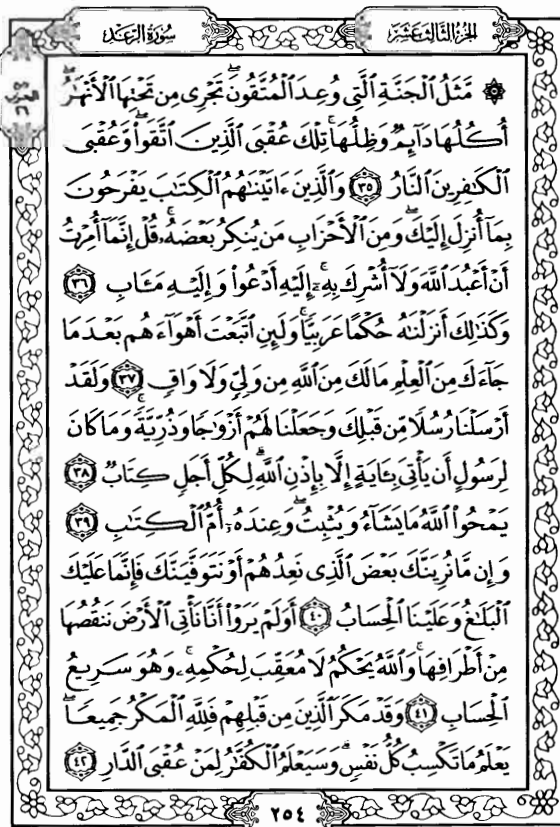 الجزء الثالث عشر
سورة الرعد
الحزب
٢٦
۞ مَّثَلُ ٱلْجَنَّةِ ٱلَّتِى وُعِدَ ٱلْمُتَّقُونَ ۖ تَجْرِى مِن تَحْتِهَا ٱلْأَنْهَٰرُ ۖ
أُكُلُهَا دَآئِمٌ وَظِلُّهَا ۚ تِلْكَ عُقْبَى ٱلَّذِينَ ٱتَّقَوا۟ ۖ وَّعُقْبَى
ٱلْكَٰفِرِينَ ٱلنَّارُ ٣٥ وَٱلَّذِينَ ءَاتَيْنَٰهُمُ ٱلْكِتَٰبَ يَفْرَحُونَ
بِمَآ أُنزِلَ إِلَيْكَ ۖ وَمِنَ ٱلْأَحْزَابِ مَن يُنكِرُ بَعْضَهُۥ ۚ قُلْ إِنَّمَآ أُمِرْتُ
أَنْ أَعْبُدَ ٱللَّهَ وَلَآ أُشْرِكَ بِهِۦٓ ۚ إِلَيْهِ أَدْعُوا۟ وَإِلَيْهِ مَـَٔابِ ٣٦
وَكَذَٰلِكَ أَنزَلْنَٰهُ حُكْمًا عَرَبِيًّا ۚ وَلَئِنِ ٱتَّبَعْتَ أَهْوَآءَهُم بَعْدَمَا
جَآءَكَ مِنَ ٱلْعِلْمِ مَا لَكَ مِنَ ٱللَّهِ مِن وَلِىٍّ وَلَا وَاقٍ ٣٧ وَلَقَدْ
أَرْسَلْنَا رُسُلًا مِّن قَبْلِكَ وَجَعَلْنَا لَهُمْ أَزْوَٰجًا وَذُرِّيَّةً ۚ وَمَا كَانَ
لِرَسُولٍ أَن يَأْتِىَ بِـَٔايَةٍ إِلَّا بِإِذْنِ ٱللَّهِ ۗ لِكُلِّ أَجَلٍ كِتَابٌ ٣٨
يَمْحُوا۟ ٱللَّهُ مَا يَشَآءُ وَيُثْبِتُ ۖ وَعِندَهُۥٓ أُمُّ ٱلْكِتَٰبِ ٣٩
وَإِن مَّا نُرِيَنَّكَ بَعْضَ ٱلَّذِى نَعِدُهُمْ أَوْ نَتَوَفَّيَنَّكَ فَإِنَّمَا عَلَيْكَ
ٱلْبَلَٰغُ وَعَلَيْنَا ٱلْحِسَابُ ٤٠ أَوَلَمْ يَرَوْا۟ أَنَّا نَأْتِى ٱلْأَرْضَ نَنقُصُهَا
مِنْ أَطْرَافِهَا ۚ وَٱللَّهُ يَحْكُمُ لَا مُعَقِّبَ لِحُكْمِهِۦ ۚ وَهُوَ سَرِيعُ
ٱلْحِسَابِ ٤١ وَقَدْ مَكَرَ ٱلَّذِينَ مِن قَبْلِهِمْ فَلِلَّهِ ٱلْمَكْرُ جَمِيعًا ۖ
يَعْلَمُ مَا تَكْسِبُ كُلُّ نَفْسٍ ۗ وَسَيَعْلَمُ ٱلْكُفَّٰرُ لِمَنْ عُقْبَى ٱلدَّارِ ٤٢
٢٥٤